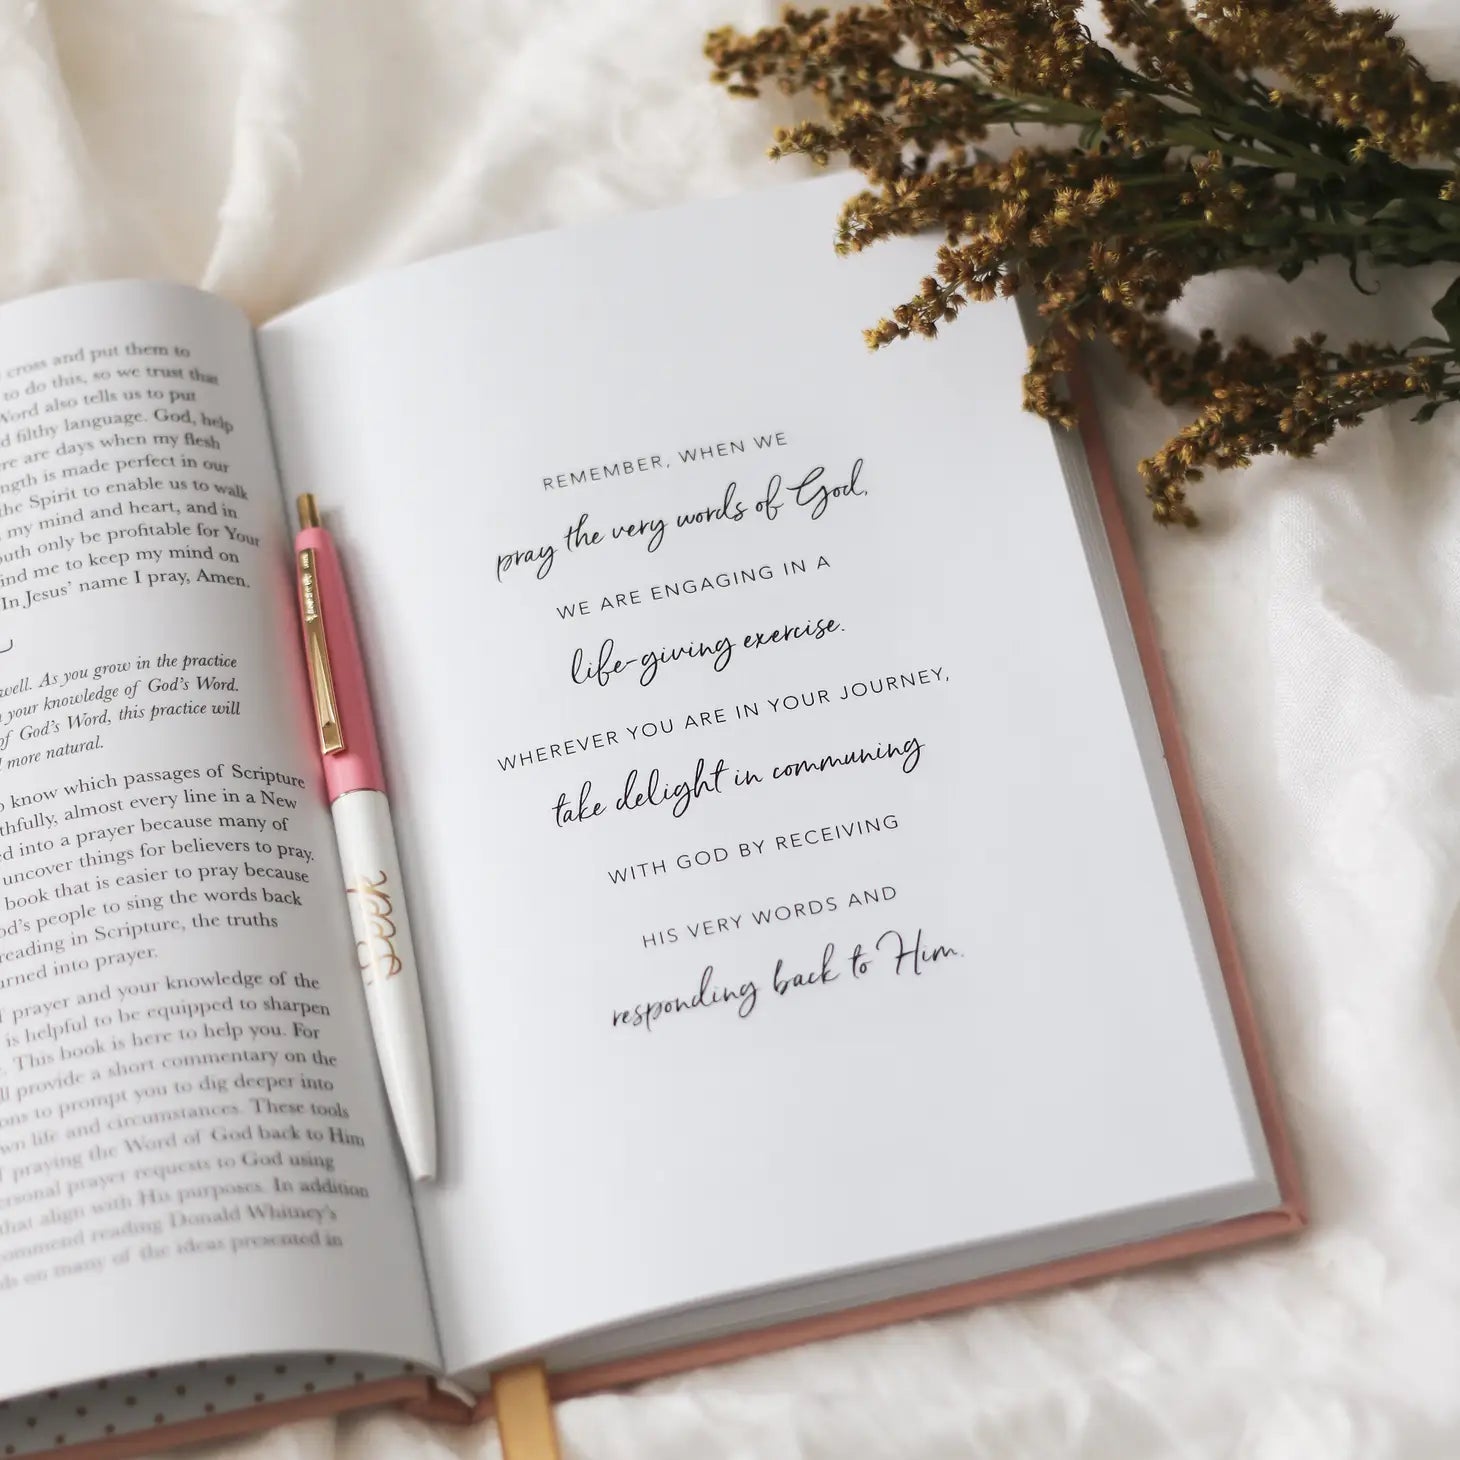 cross and put them to
to do this, so we trust that
Word also tells us to put
d filthy language. God, help
re are days when my flesh
ngth is made perfect in our
the Spirit to enable us to walk
my mind and heart, and in
outh only be profitable for Your
ind me to keep my mind on
In Jesus' name I pray, Amen.
well. As you grow in the practice
your knowledge of God's Word.
of God's Word, this practice will
more natural.
o know which passages of Scripture
thfully, almost every line in a New
ed into a prayer because many of
uncover things for believers to pray.
book that is easier to pray because
od's people to sing the words back
reading in Scripture, the truths
urned into prayer.
f prayer and your knowledge of the
is helpful to be equipped to sharpen
. This book is here to help you. For
ll provide a short commentary on the
ons to prompt you to dig deeper into
wn life and circumstances. These tools
f praying the Word of God back to Him
ersonal prayer requests to God using
that align with His purposes. In addition
commend reading Donald Whitney's
on many of the ideas presented in
Seek
REMEMBER, WHEN WE
pray the very words of God,
WE ARE ENGAGING IN A
life-giving exercise.
WHEREVER YOU ARE IN YOUR JOURNEY,
take delight in communing
WITH GOD BY RECEIVING
HIS VERY WORDS AND
responding back to Him.